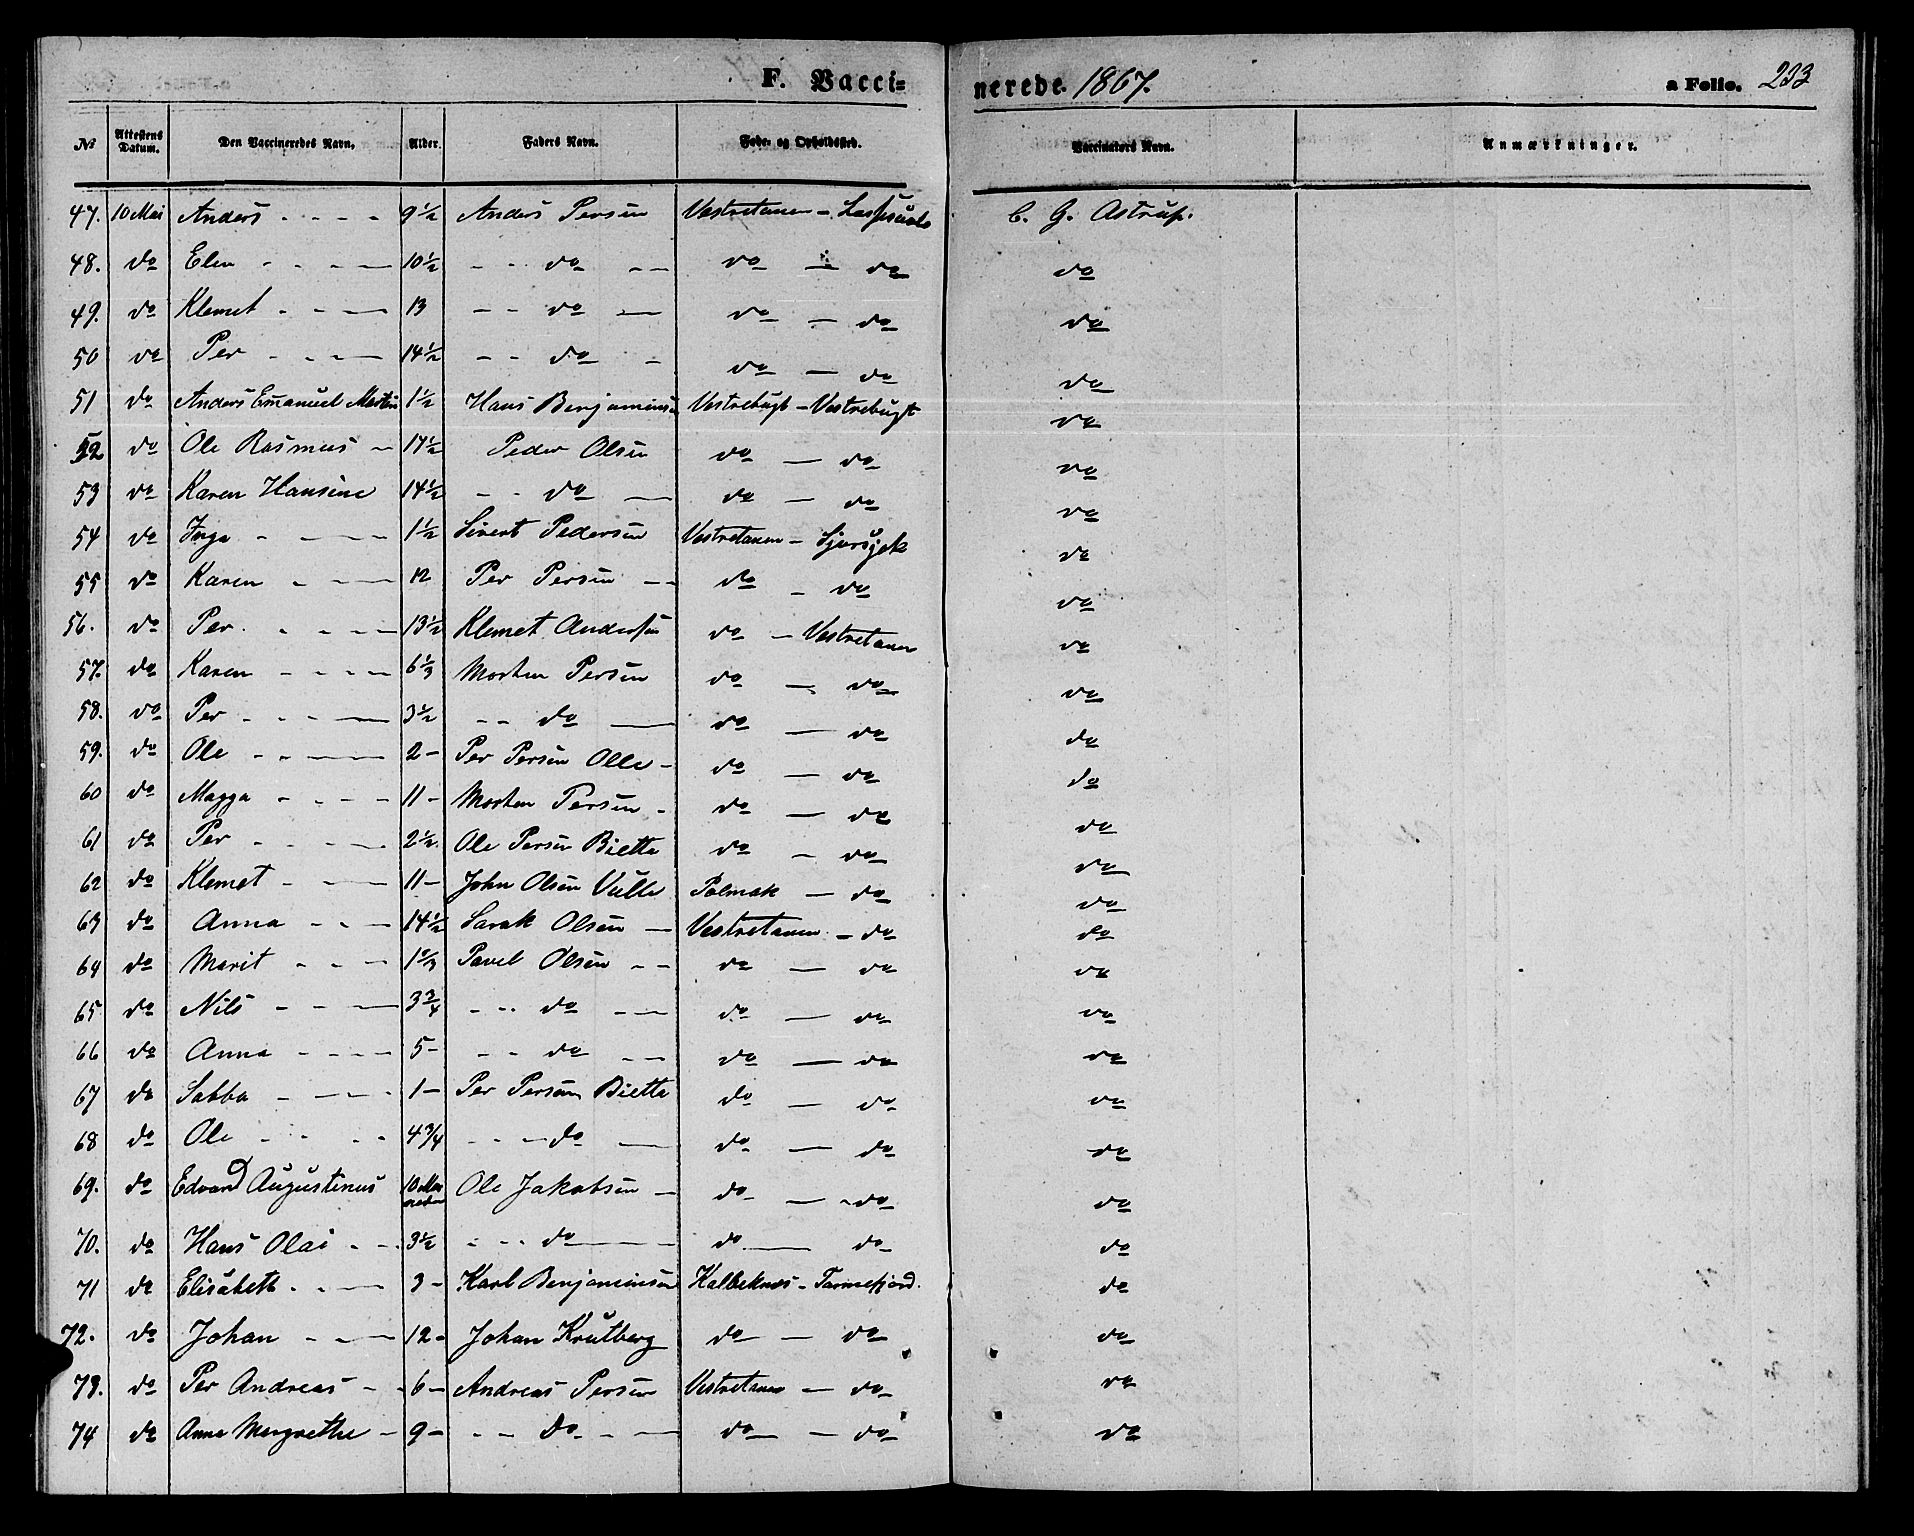 F. Vaccinerede 1867. a Folio. 233
No Attestens Datum. Den Vaccineredes Navn. Alder. Faders Navn. Føde- og Opholdssted. Vaccinators Navn. Anmærkninger.
47. 10 Mai Anders - - - - 9 1/2 Anders Persen Vestretanen - C. G. Astrup.
48. do Elen - - - - 10 1/2 - - do - - do - do do
49. do Klemet - - - 13 - - do - do - do do
50 do Per - - - - 14 1/2 - - do - do - do do
51 do Anders Emanuel Martin 1 1/2 Hans Benjaminsen Vestrebugt - Vestrebugt do
52 do Ole Rasmus - 17 1/2 Peder Olsen do - do do
53 do Karen Hansine 14 1/2 - - do - do - do do
54 do Inga - - - 1 1/2 Sivert Pedersen Vestretanen - do
55 do Karen - - - 12 Per Persen - - do - do do
56. do Per - - - - 13 1/2 Klemet Andersen do - Vestretanen do
57. do Karen - - - - 6 1/3 Morten Persen do - do do
58. do Per - - - - 3 1/2 - - do - do - do do
59. do Ole - - - 2 - Per Persen Olle - do - do do
60 do Magga - - - - 11 - Morten Persen - do - do do
61 do Per - - - - 2 1/2 Ole Persen Bietta do - do do
62 do Klemet - - - 11 - John Olsen Vulle Polmak - do do
63 do Anna - - - 14 1/2 Sarak Olsen - Vestretanen - do do
64 do Marit - - - 1 2/3 Pavel Olsen - - do - do do
65 do Nils - - - 3 3/4 - - do - - do - do do
66 do Anna - - - - 5 - - - do - - do - do do
67 do Sabba - - - - 1 - Per Persen Bietta do - do do
68 do Ole - - - - 4 3/4 - - - do - do - do do
69. do Edvard Augustinus 10 Maaneder Ole Jakobsen - do - - do do
70. do Hans Olai - - 3 1/2 - - - do - do - do do
71 do Elisabeth - - - 3 - Karl Benjaminsen Kalbeknes - Tarmefjord. do
72. do Johan - - - 12 - Johan Krutberg do - do do
73. do Per Andreas - - 6 - Andreas Persen Vestretanen - do do
74 do Anna Margrethe - 9 - - - do - - do - do do